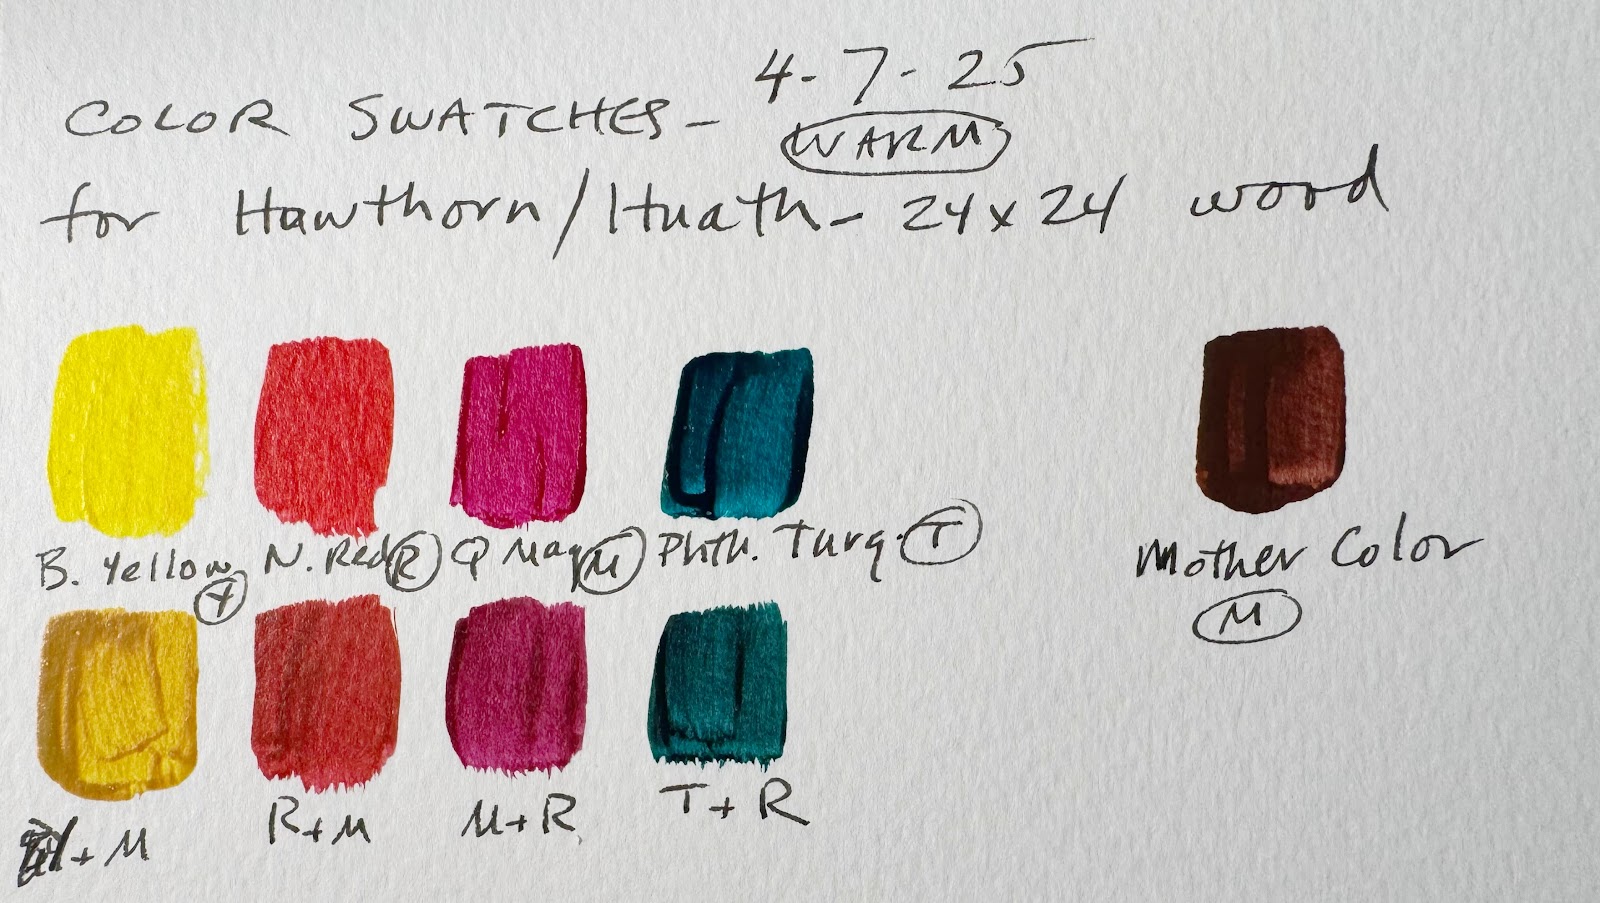 4-7-25
COLOR SWATCHES - WARM
for Hawthorn/Huath - 24x24 wood
B. Yellow Y N. Red R Q Mag M Phth. Turq. T
Mother Color
M
Y+M R+M M+R T+R